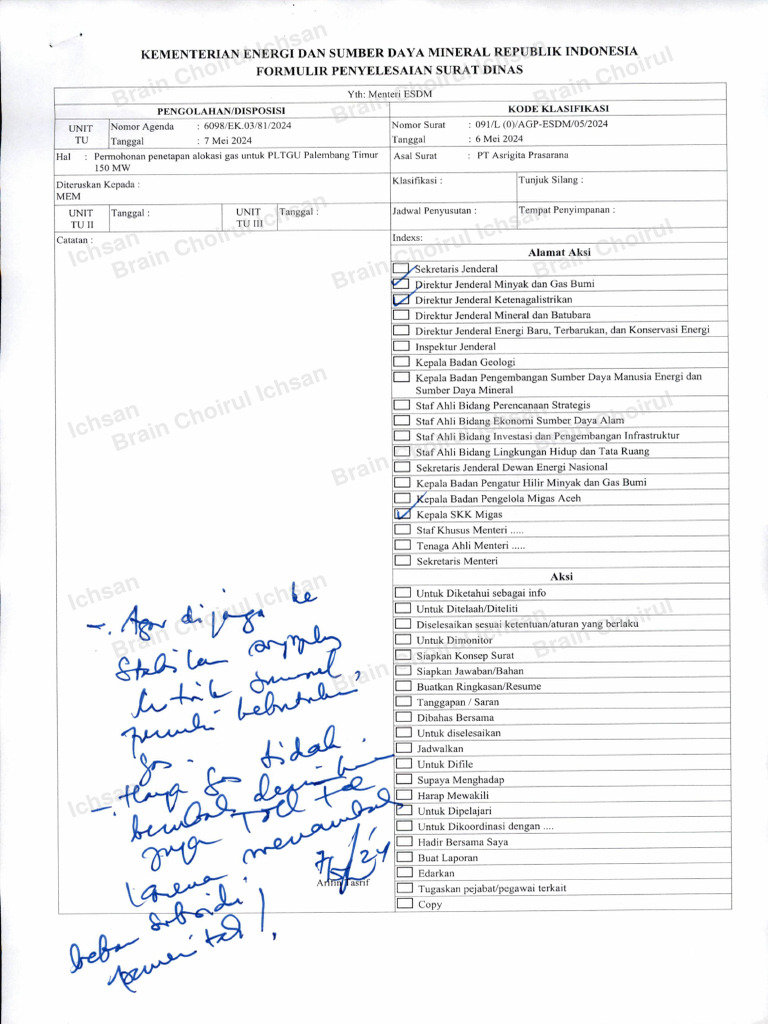 KEMENTERIAN ENERGI DAN SUMBER DAYA MINERAL REPUBLIK INDONESIA
FORMULIR PENYELESAIAN SURAT DINAS
Yth: Menteri ESDM
PENGOLAHAN/DISPOSISI
UNIT TU
Nomor Agenda : 6098/EK.03/81/2024
Tanggal : 7 Mei 2024
Hal : Permohonan penetapan alokasi gas untuk PLTGU Palembang Timur
150 MW
Diteruskan Kepada :
MEM
UNIT TU II Tanggal : UNIT TU III Tanggal :
Catatan :
KODE KLASIFIKASI
Nomor Surat : 091/L (0)/AGP-ESDM/05/2024
Tanggal : 6 Mei 2024
Asal Surat : PT Asrigita Prasarana
Klasifikasi : Tunjuk Silang :
Jadwal Penyusutan : Tempat Penyimpanan :
Indexs:
Alamat Aksi
Sekretaris Jenderal
Direktur Jenderal Minyak dan Gas Bumi
Direktur Jenderal Ketenagalistrikan
Direktur Jenderal Mineral dan Batubara
Direktur Jenderal Energi Baru, Terbarukan, dan Konservasi Energi
Inspektur Jenderal
Kepala Badan Geologi
Kepala Badan Pengembangan Sumber Daya Manusia Energi dan
Sumber Daya Mineral
Staf Ahli Bidang Perencanaan Strategis
Staf Ahli Bidang Ekonomi Sumber Daya Alam
Staf Ahli Bidang Investasi dan Pengembangan Infrastruktur
Staf Ahli Bidang Lingkungan Hidup dan Tata Ruang
Sekretaris Jenderal Dewan Energi Nasional
Kepala Badan Pengatur Hilir Minyak dan Gas Bumi
Kepala Badan Pengelola Migas Aceh
Kepala SKK Migas
Staf Khusus Menteri .....
Tenaga Ahli Menteri .....
Sekretaris Menteri
Aksi
Untuk Diketahui sebagai info
Untuk Ditelaah/Diteliti
Diselesaikan sesuai ketentuan/aturan yang berlaku
Untuk Dimonitor
Siapkan Konsep Surat
Siapkan Jawaban/Bahan
Buatkan Ringkasan/Resume
Tanggapan / Saran
Dibahas Bersama
Untuk diselesaikan
Jadwalkan
Untuk Difile
Supaya Menghadap
Harap Mewakili
Untuk Dipelajari
Untuk Dikoordinasi dengan ....
Hadir Bersama Saya
Buat Laporan
Edarkan
Tugaskan pejabat/pegawai terkait
Copy
-. Agar dijaga ke
stabilan supply
listrik
kebutuhan
gas.
-. Harga gas tidah
berubah demikian
juga
karena menambah
beban subsidi
7/5/24
Arifin Tasrif
Brain Choirul Ichsan